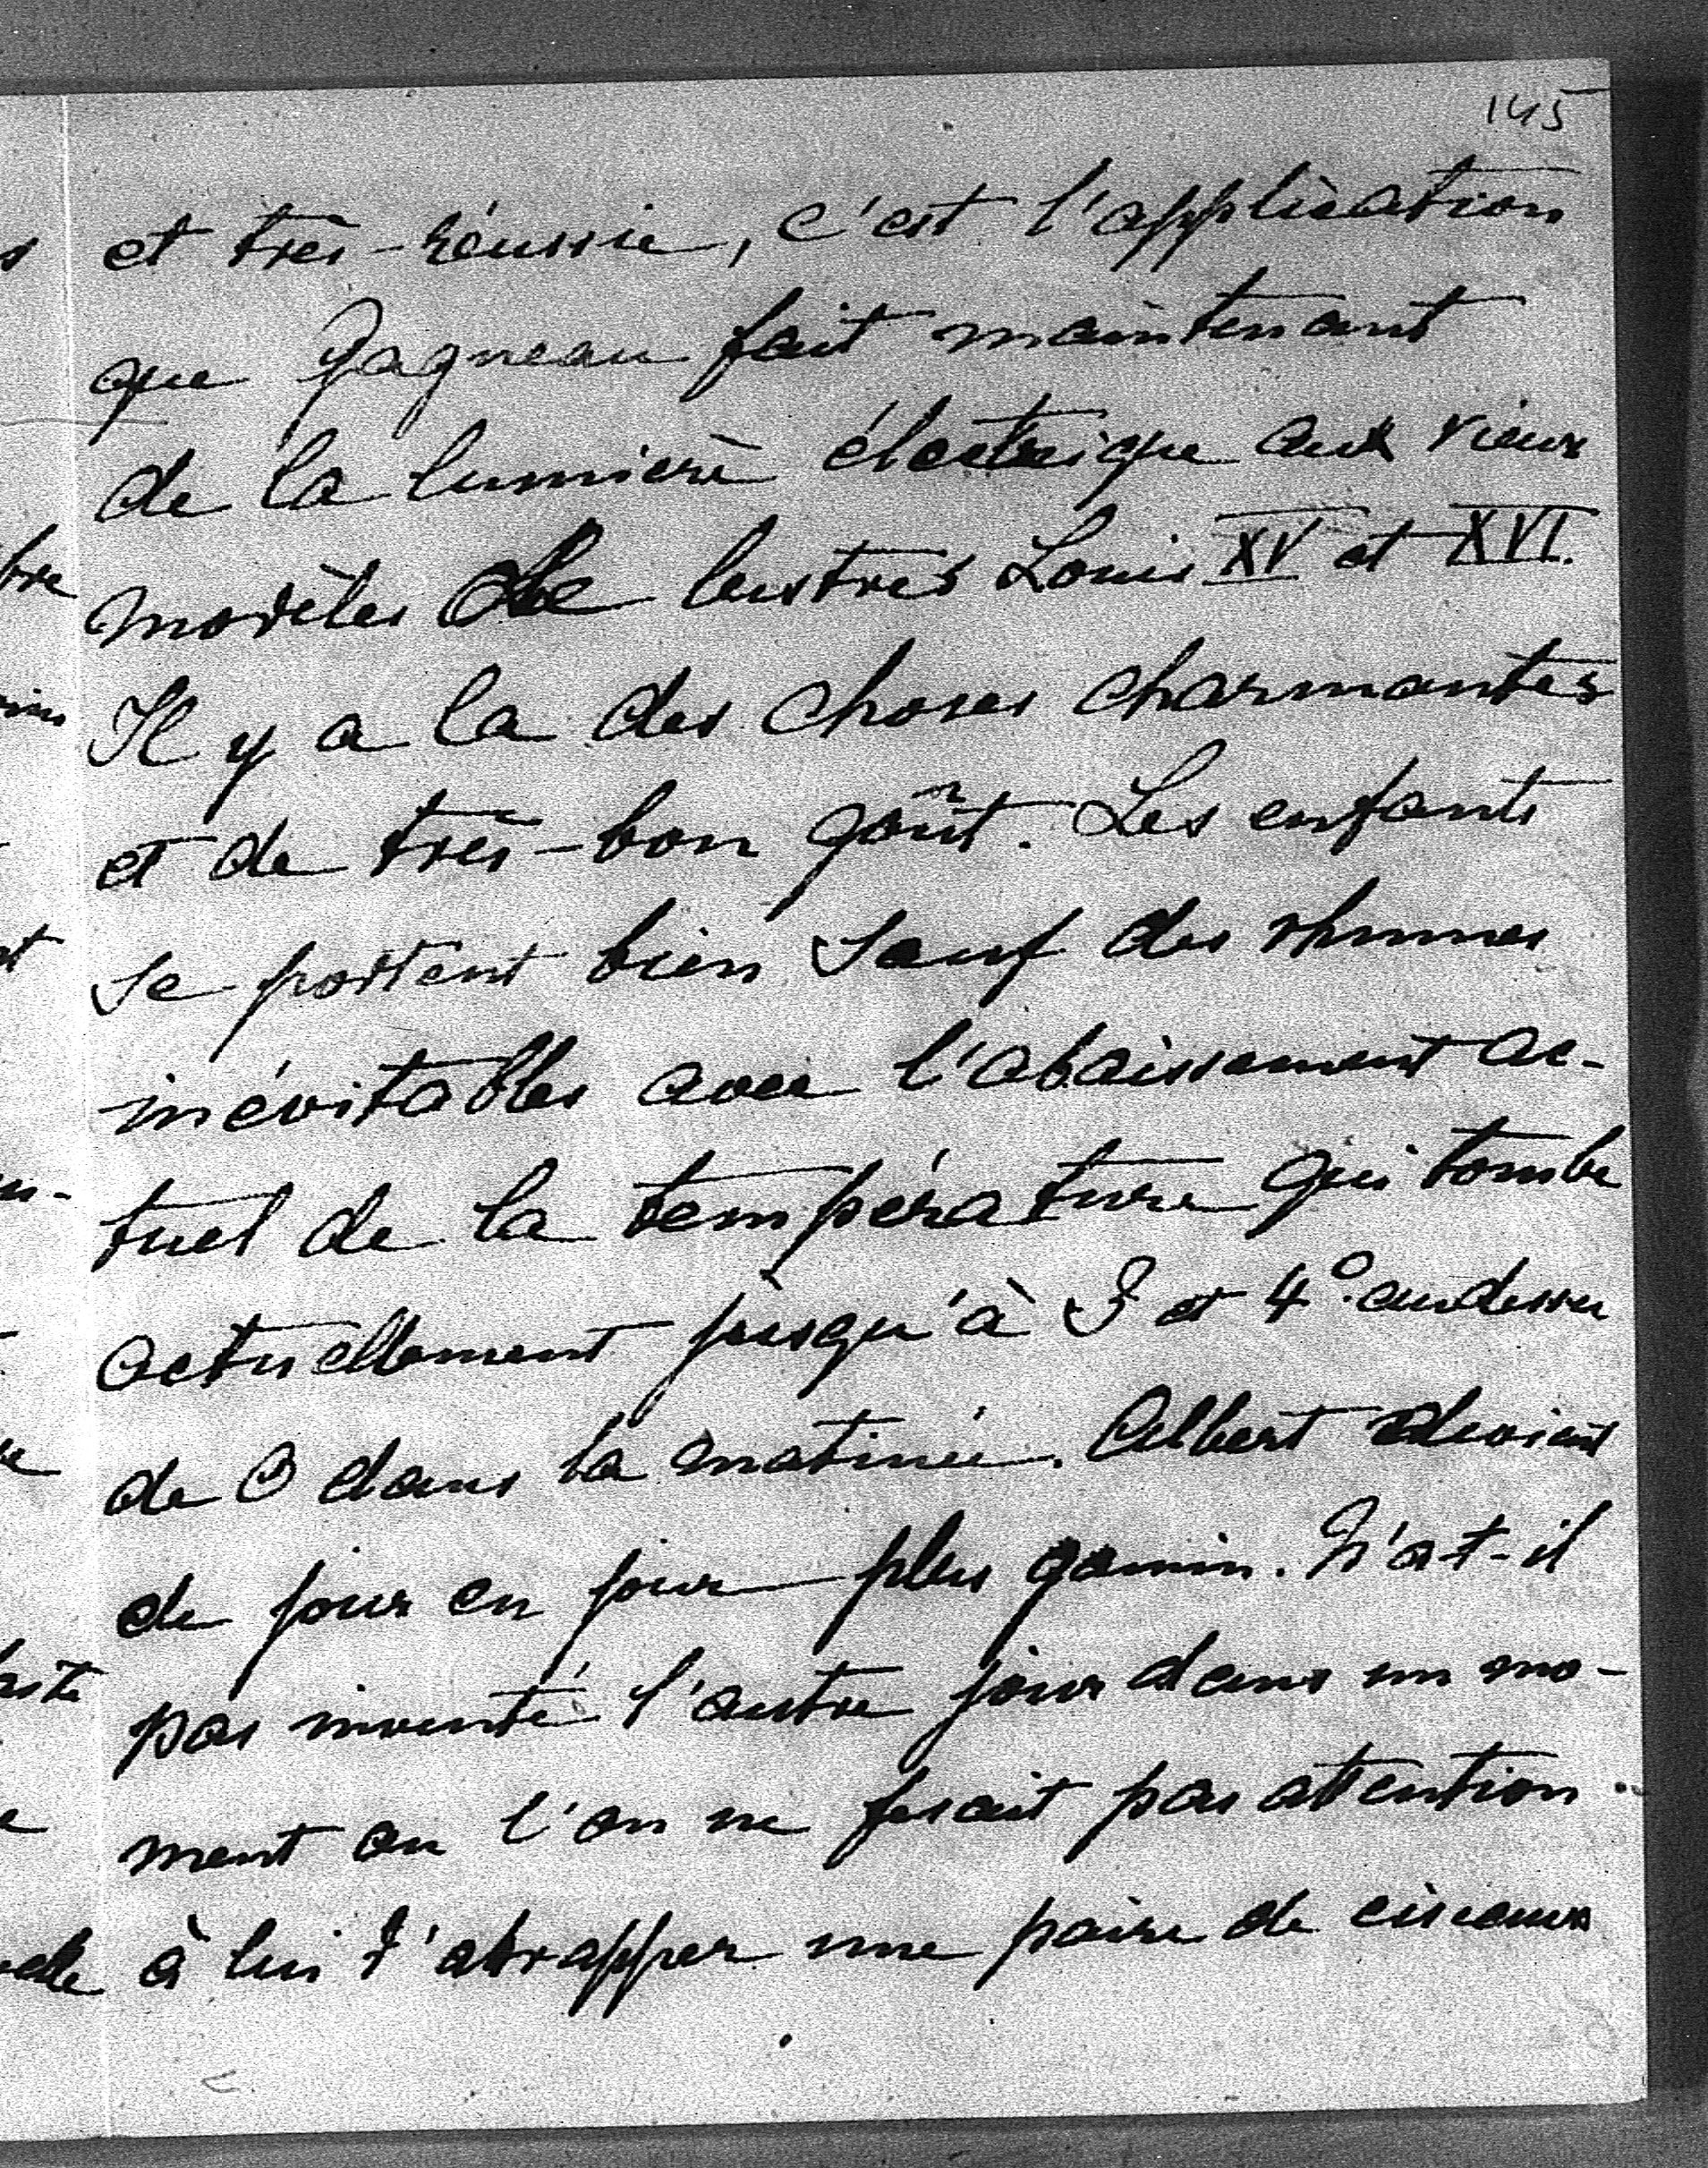 145
et très-réussie, c'est l'application
que Gagneau fait maintenant
de la lumière électrique aux vieux
modèles de lustres Louis XV et XVI.
Il y a la des choses charmantes
et de très-bon goût. Les enfants
se portent bien sauf des rhumes
inévitables avec l'abaissement ac-
tuel de la température qui tombe
actuellement jusqu'à 3 et 4° audessu
de 0 dans la matinée. Albert devient
de jour en jour plus gamin. N'a-t-il
pas inventé l'autre jour dans un mo-
ment ou l'on ne fesait pas attention
à lui d'attrapper une paire de ciseaux